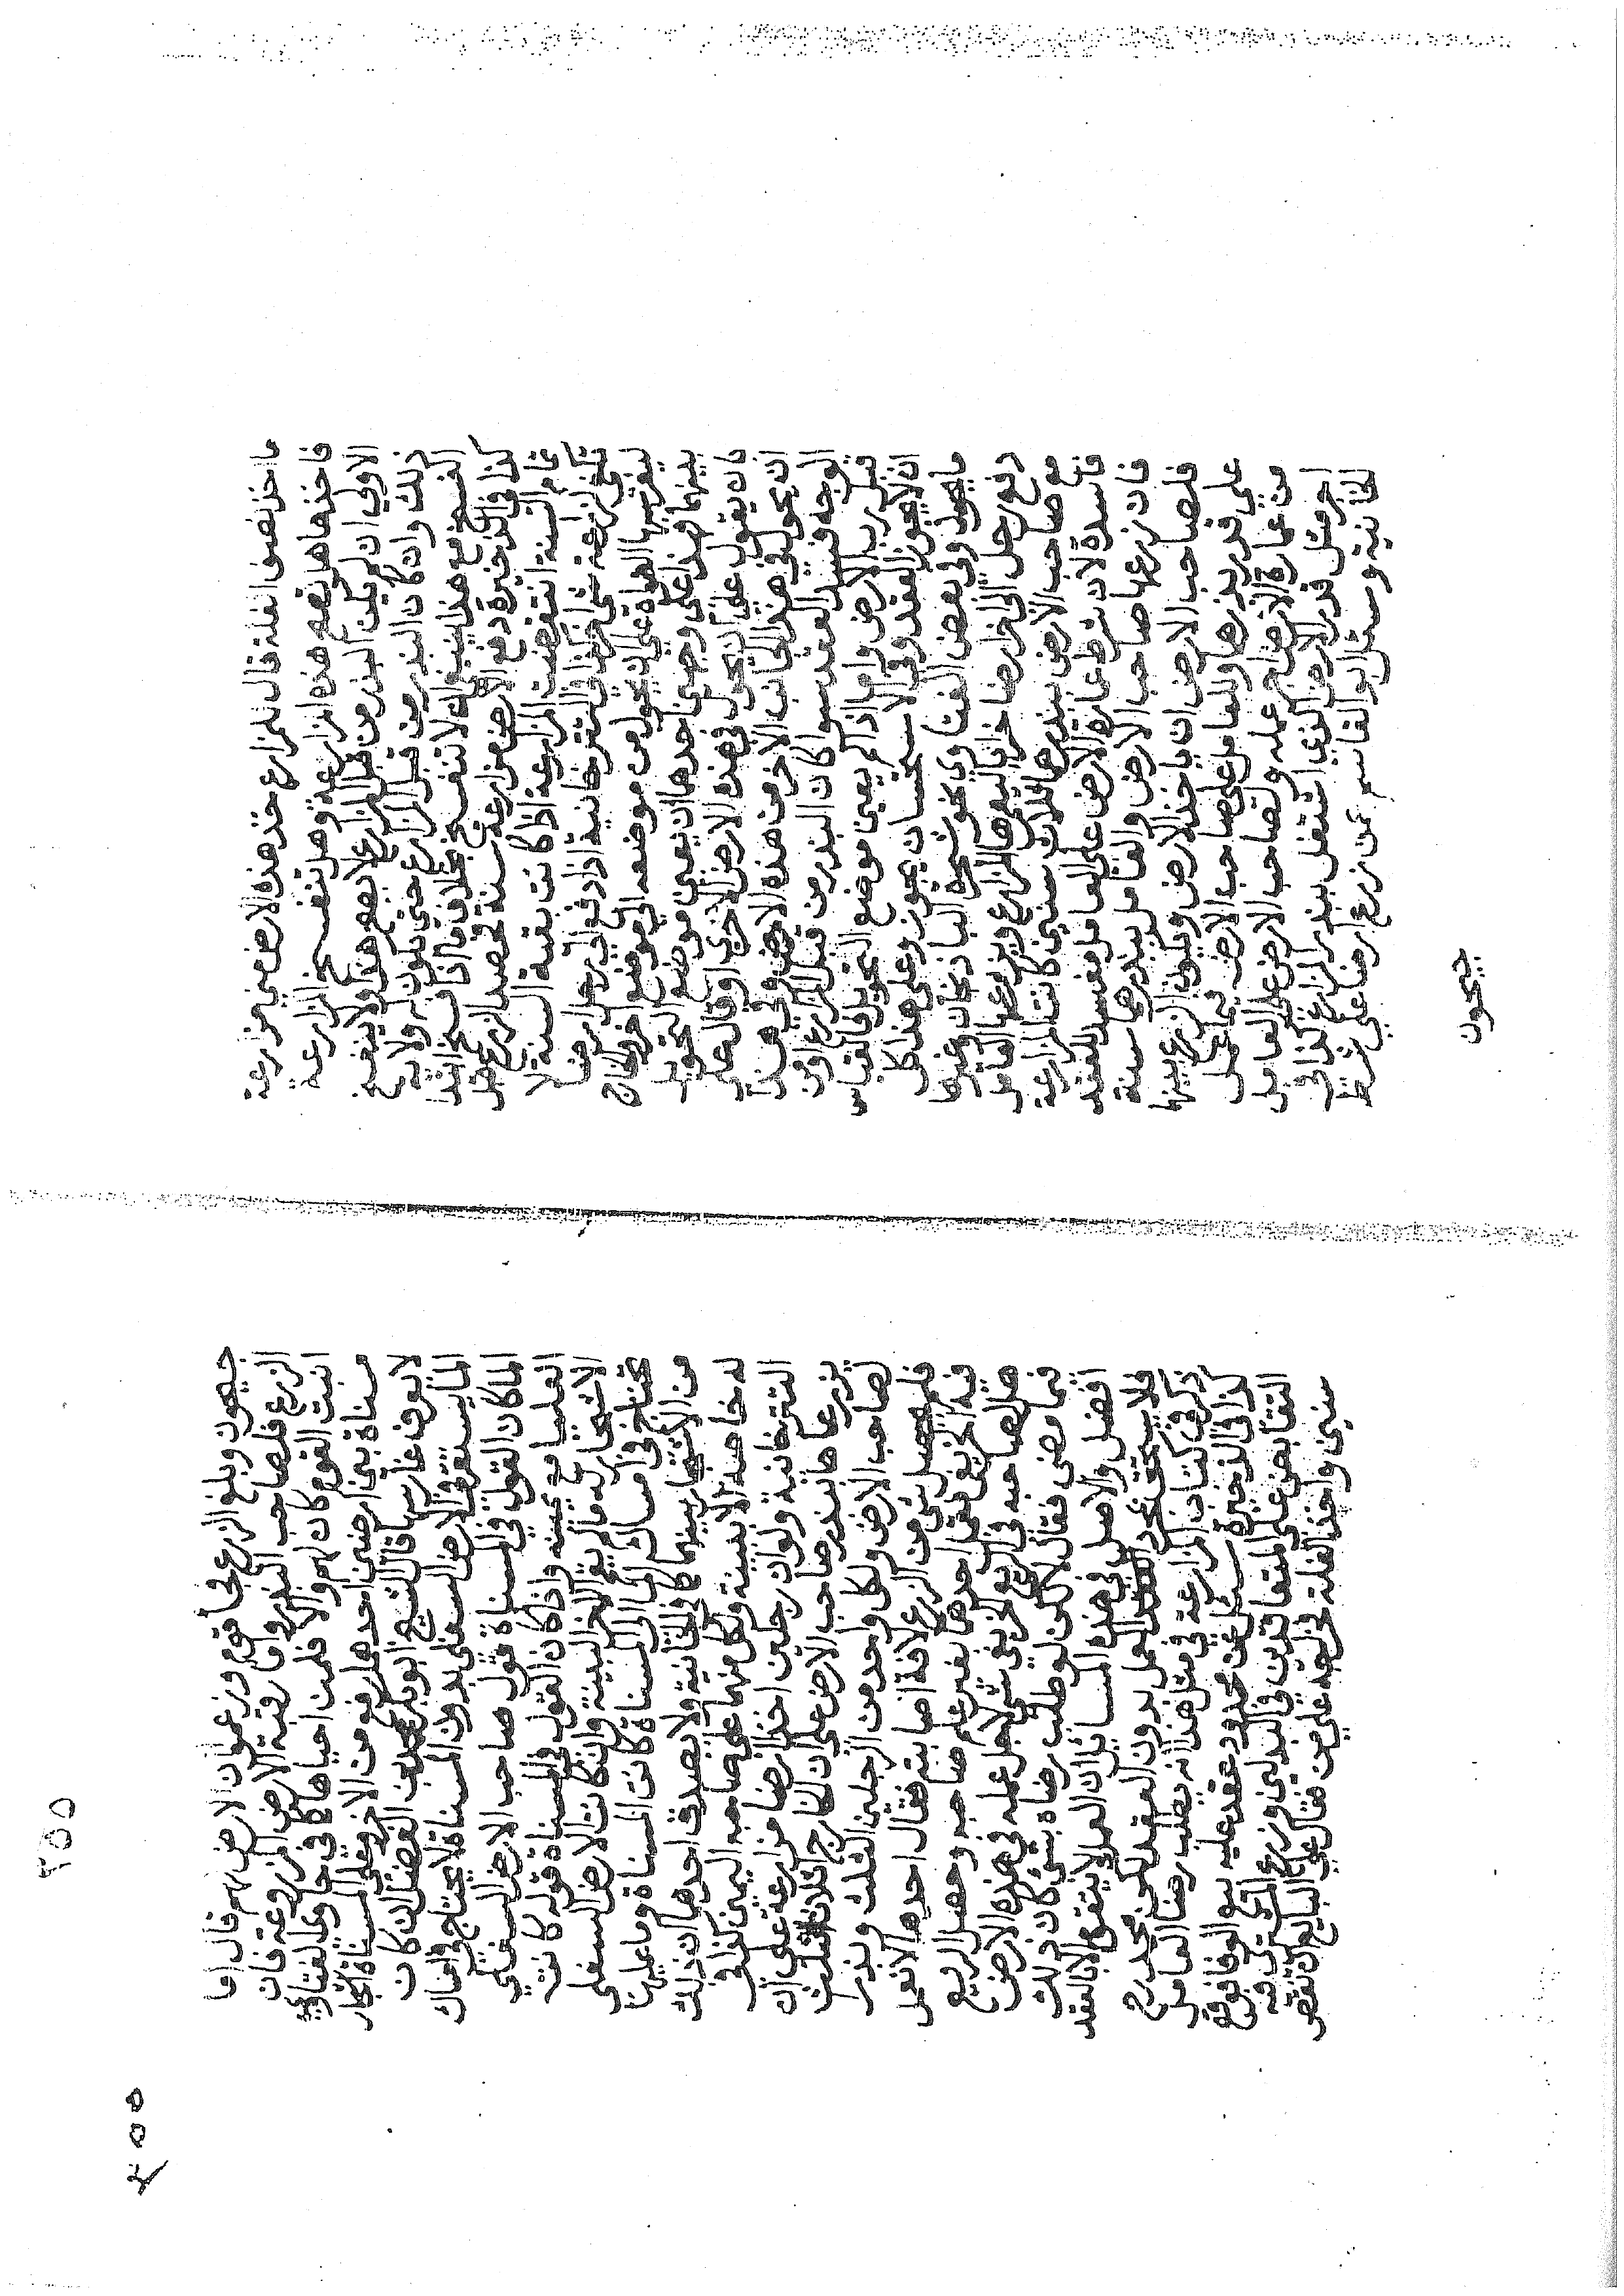 ما خذ نصف الغلة قال للمزارع خذ هذه الارض مني مزارعة
فاخذها هل تصح هذه المزارعة وهل تنفسخ المزارعة
الاولي ان لم يكن البذر من قبل المزارع لا يصح هذا ولا ينفسخ
ذلك وان كان البذر من قبل المزارع حتي يكون له ولاية
الفسخ مع هذا ينبغي ان لا تنفسخ بخلاف ما اذا فسخ
كذا في الذخيرة دفع الارض مزارعة سنة فحصد الزرع قبل
تمام السنة انتقضت المزارعة اذا كانت بقية السنة لا
تكفي لزراعة شي اخر كذا في التترخانية اذا دفع الي رجل ارضا
ليغرسها النواة علي ان يحول من موضعه الي موضع اخر والخارج
بينهما فهذا علي وجهين احدهما ان يعين موضع التحويل
بان يقول علي ان يحول في هذه الارض الاخري او قال علي
ان يحول في هذا الجانب الاخر من هذه الارض وفي هذا
الوجه فسد العقد سوا كان البذر من قبل المزارع او من
قبل رب الارض واما اذا لم يعين موضع التحويل فالقياس
ان لا يجوز العقد وفي الاستحسان يجوز وعلي هذا كل
ما يحول وفي بعض الفتاوي نحو شجرة الباذنجان وغيرها
دفع رجل الي اخر ارضا خرابا ليعمرها المزارع ويزرعها العامل
مع صاحب الارض ببذرهما ثلاث سنين كانت المزارعة
فاسدة لان شرط عمارة الارض علي العامل مفسد للعقد
فان زرعها صاحب الارض والعامل ببذرهما سنة
فلصاحب الارض ان ياخذ الارض ويكون الزرع بينهما
علي قدر بذرهما وللعامل علي صاحب الارض فيما عمل
من عمارة الارض اجر عمله ولصاحب الارض علي العامل
اجر مثل قدر الارض الذي اشتغل ببذر المزارع كذا في
الخانية وسئل ابو القاسم عمن زرع ارضا علي شط
جيحون
جيحون وبلغ الزرع فجا قوم وزعموا ان الارض لهم قال اما
الزرع فلصاحب البذر واما رقبة الارض المزروعة فان
اثبت القوم كان لهم والا فلمن احياها كذا في حاوي الفتاوي
مسناة بين ارضين احدهما ارفع من الاخري وعلي المسناة اشجار
لا يعرف غارسها قال الشيخ ابو بكر محمد بن الفضل ان كان
الما يستقر في الارض السفلي بدون المسناة لا يحتاج في امساك
الما كان القول في المسناة قول صاحب الارض السفلي
العليا مع يمينه واذا كان القول في المسناة قوله كانت
الاشجار له ما لم يقم الاخر البينة وان كانت الارض السفلي
تحتاج في امساك الما الي المسناة كانت المسناة وما عليها
من الاشجار بينهما كذا في الخانية ولا يصدق احدهما ان ذلك
له خاصة الا ببينة ولكل منهما علي صاحبه اليمين كذا في
التترخانية ولو ان رجلين اخذا ارضا مزارعة علي ان
يزرعها ببذر صاحب الارض علي ان الخارج اثلاثا الثلث
لصاحب الارض ولكل واحد من الرجلين الثلث وبذرا
فلم يحصل شي من الزرع لافة اصابته فقال احدهما لا نعمل
فيه الخريفي فعمل احدهما بغير علم صاحبه وحصل الريع
هل لصاحبه في الريع الخريفي شي لاجل عمله في هذه الارض
فيما مضي فقال لا لكن لو طلب رضاه بشي كان ذلك
افضل والاصل في هذه المسائل ان العمل لا يتقوم الا بالعقد
فلا يستحق بمجرد العمل بدون العقد لكن محمد رح
ذكر في كتاب المزارعة في مثل هذا انه يطلب رضا العامل
كذا في الذخيرة سئل عن محدود عقد عليه بيع الوفا فوقع
التقابض علي المتعاقدين في البدلين وزرع المشتري فيه
سنين واخذ الغلة فخراجه علي من فقال علي البايع ان نقص
٢٥٥
٢٥٥